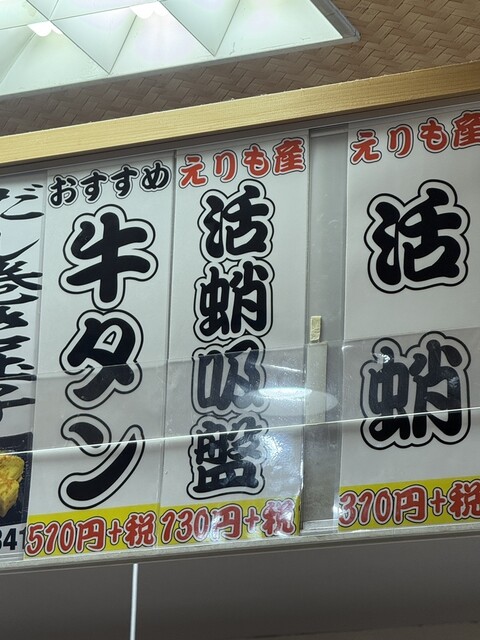 えりも産
活蛸
370円+税
えりも産
活蛸吸盤
730円+税
おすすめ
牛タン
570円+税
だし巻玉子
341